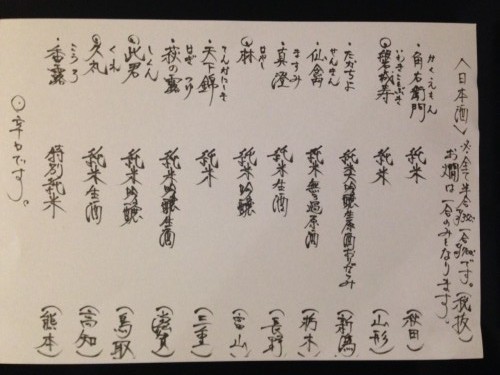 〈日本酒〉※全て半合 一合 です。(税抜)
お燗は一合のみとなります。
かくえもん
・角右衛門 純米 (秋田)
いわきことぶき
◎磐城寿 純米 (山形)
・たかちよ 純米吟醸生原酒おりがらみ (新潟)
せんきん
・仙禽 純米無ろ過原酒 (栃木)
ますみ
・真澄 純米生酒 (長野)
はやし
◎林 純米吟醸 (富山)
てんかにしき
・天下錦 純米 (三重)
はぎ つゆ
・萩の露 純米吟醸生酒 (滋賀)
しくん
◎此君 純米吟醸 (鳥取)
くれ
◎久礼 純米生酒 (高知)
こうろ
・香露 特別純米 (熊本)
◎辛口です。